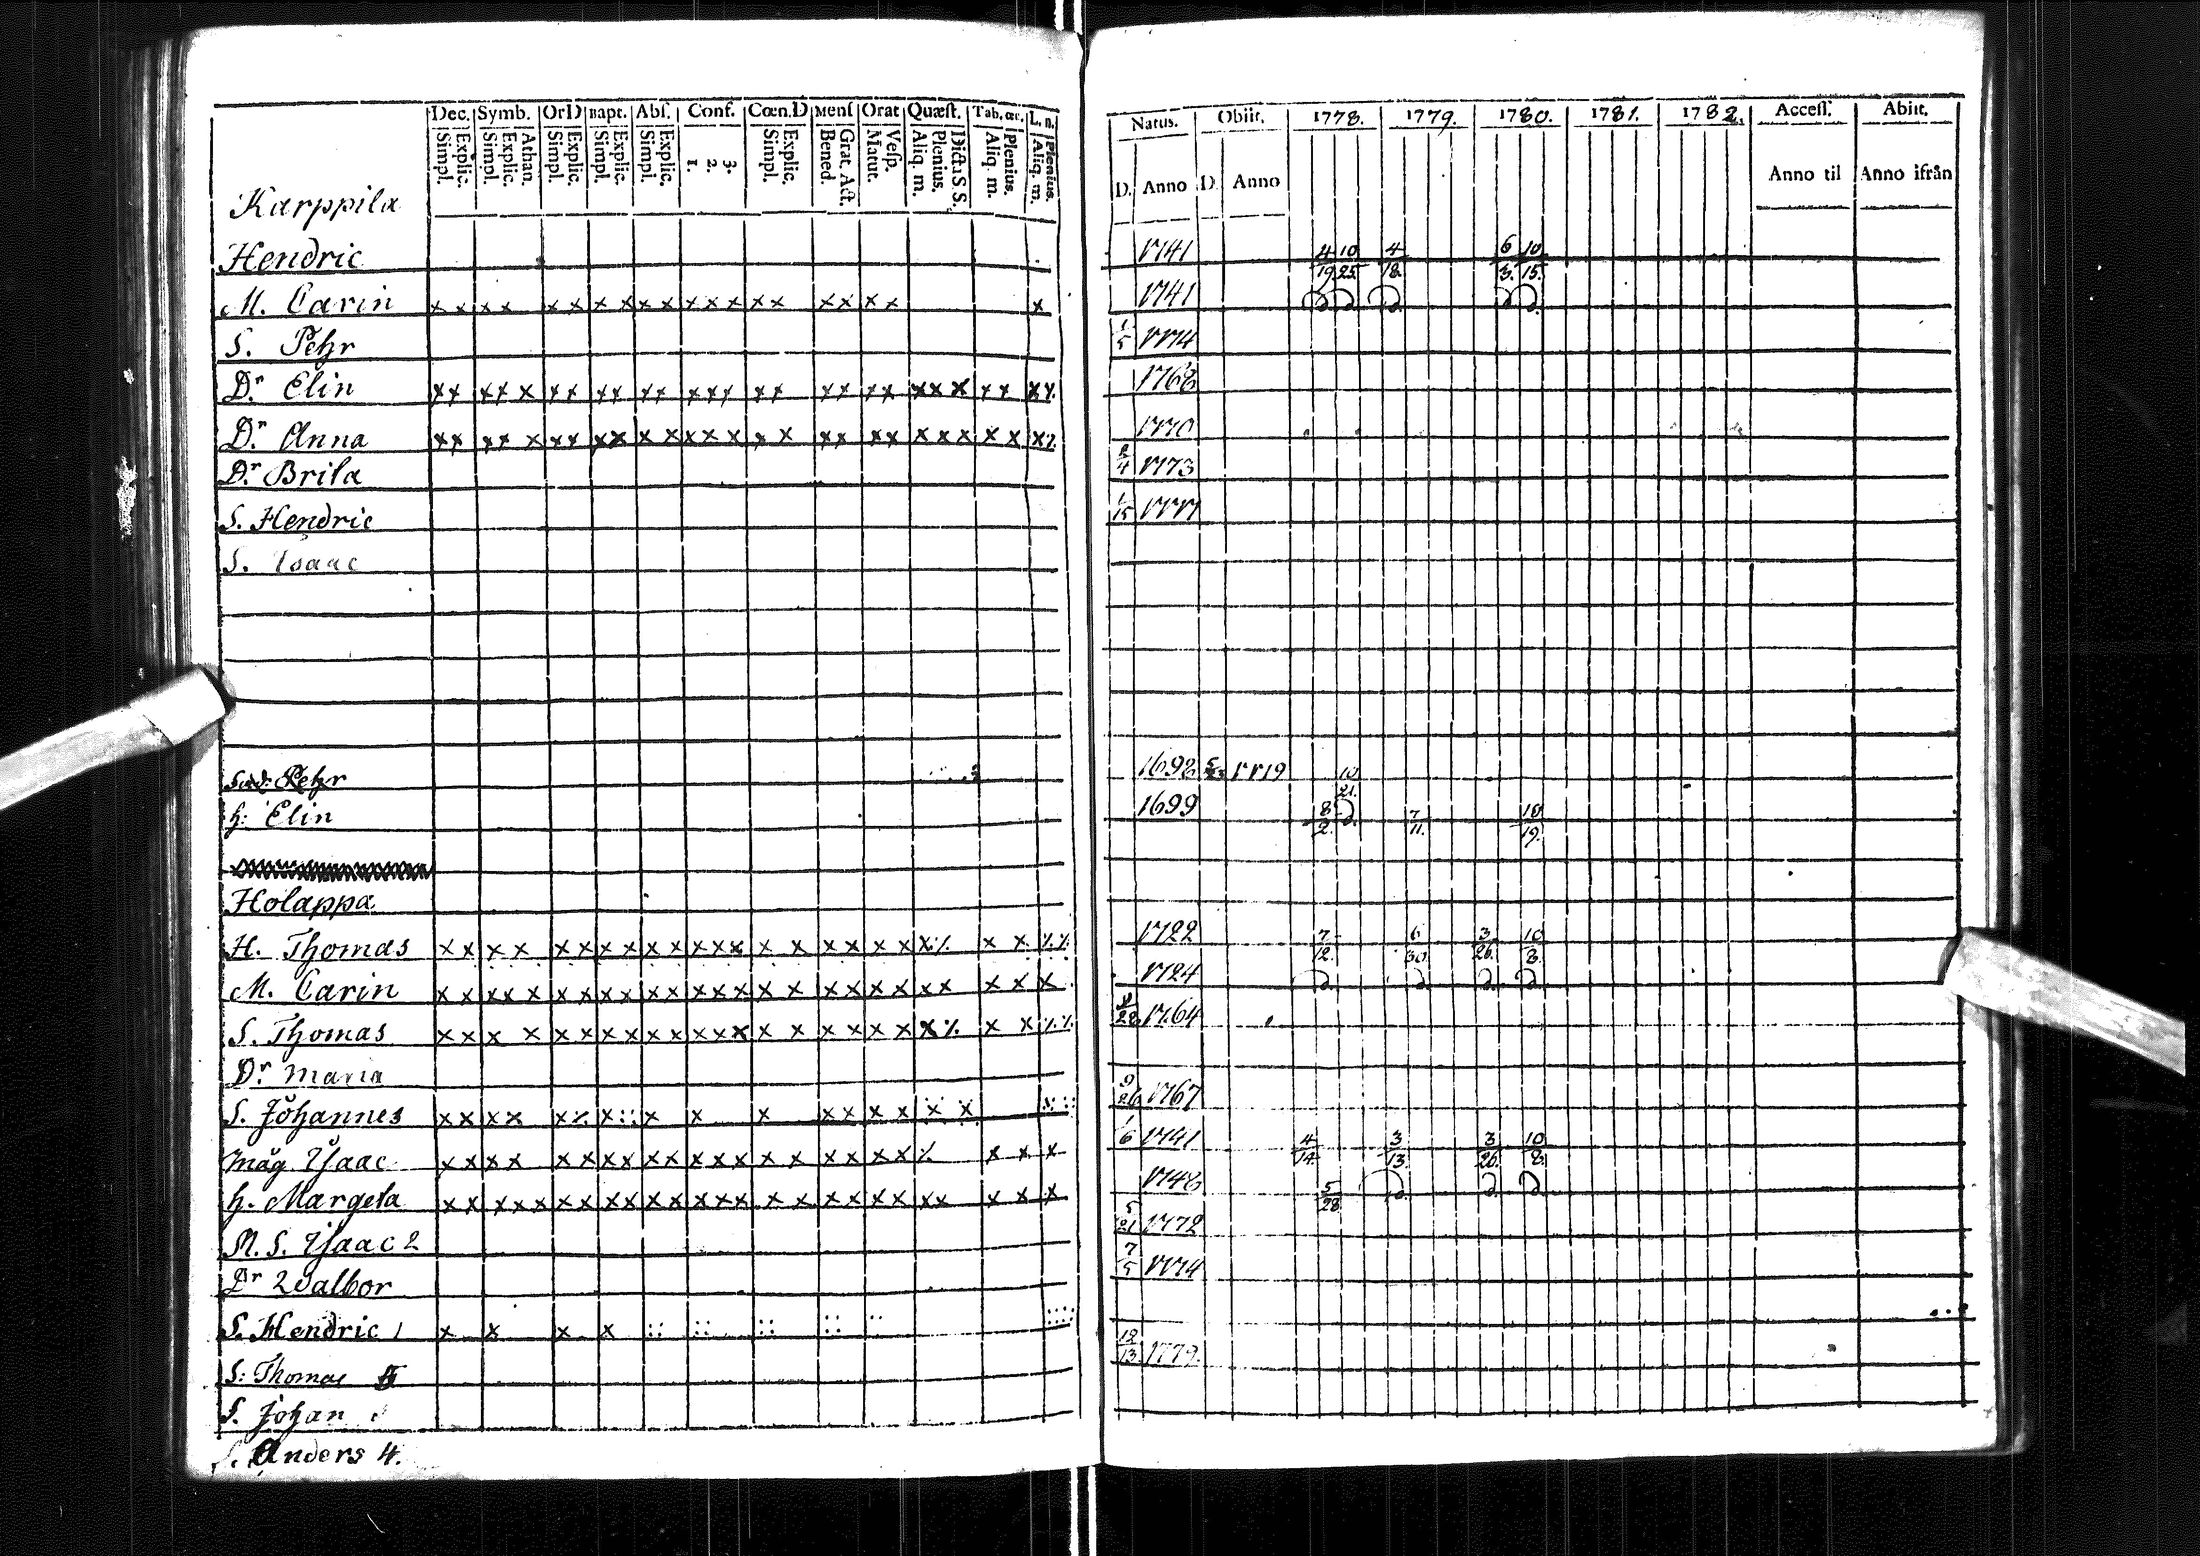 Dec. Symb. OrD Bapt. Abs. Conf. Cœn.D Mens Orat Quæst. Tab. œc. L. n.
Simpl. Explic. Simpl. Explic. Athan. Simpl. Explic. Simpl. Explic. Simpl. Explic. 1. 2. 3. Simpl. Explic. Bened. Grat. Act. Matut. Vesp. Aliq. m. Plenius. Dicta S S. Aliq. m. Plenius. Aliq. m. Plenius.
Karppila
Hendric
M. Carin x x x x x x x x x x x x x x x x x x x x
S. Pehr
Dr Elin x x x x x x x x x x x x x x x x x x x x x x x x x x x
Dr Anna x x x x x x x x x x x x x x x x x x x x x x x x x x x
Dr Brita
S. Hendric
S. Isaac
Pehr
h: Elin
Holappa
H. Thomas
M. Carin
S. Thomas
Dr Maria
S. Johannes
måg Isaac
h. Margeta
S. Isaac 2
Dr Walbor
S. Hendric 1
S: Thomas 5
S. Johan
S. Anders 4.
Natus. Obiit. 1778. 1779. 1780. 1781. 1782. Access. Abiit.
D. Anno D. Anno Anno til Anno ifrån
1741 4/19 10/25 4/18 6/3 10/15
1741
1/5 1774
1768
1770
1773
1777
1698 1779 10/21
1699 8/2 7/11 10/19
1722 7/12 6/30 3/26 10/8
1724
1764
9/26 1767
1/6 1741 4/14 3/13 3/26 10/8
1748 5/28
5/21 1772
7/5 1774
12/13 1779